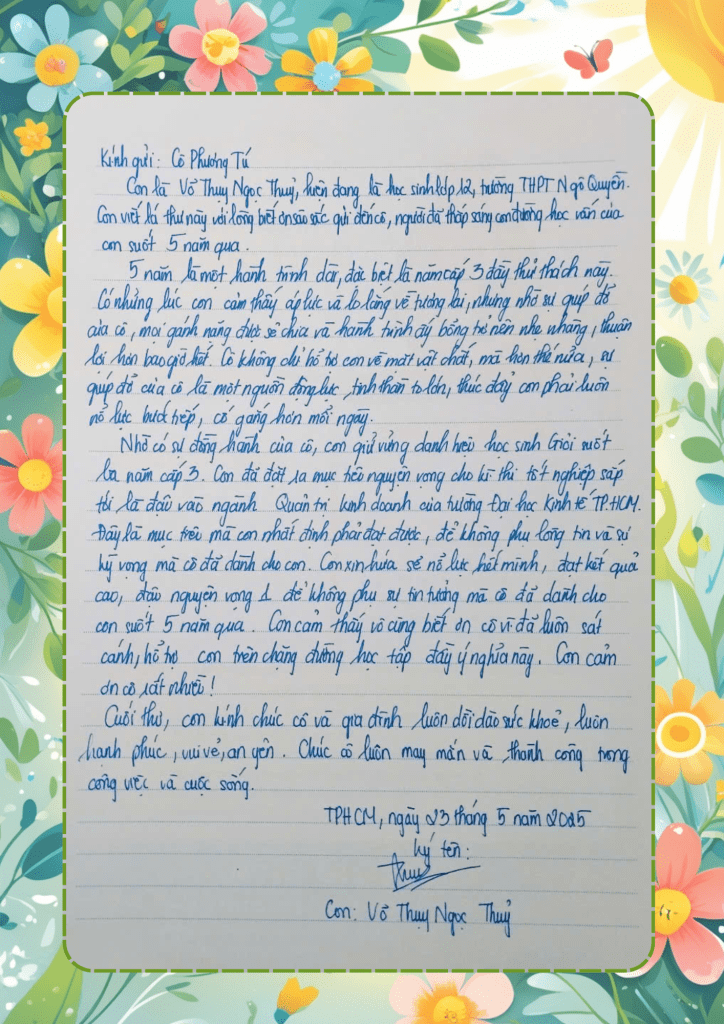 Kính gửi: Cô Phương Tú
Con là Võ Thụy Ngọc Thuỷ, hiện đang là học sinh lớp 12, trường THPT Ngô Quyền.
Con viết lá thư này với lòng biết ơn sâu sắc gửi đến cô, người đã thắp sáng con đường học vấn của
con suốt 5 năm qua.
5 năm là một hành trình dài, đặc biệt là năm cấp 3 đầy thử thách này.
Có những lúc con cảm thấy áp lực và lo lắng về tương lai, nhưng nhờ sự giúp đỡ
của cô, mọi gánh nặng được sẻ chia và hành trình ấy bỗng trở nên nhẹ nhàng, thuận
lợi hơn bao giờ hết. Cô không chỉ hỗ trợ con về mặt vật chất, mà hơn thế nữa, sự
giúp đỡ của cô là một nguồn động lực tinh thần to lớn, thúc đẩy con phải luôn
nỗ lực bước tiếp, cố gắng hơn mỗi ngày.
Nhờ có sự đồng hành của cô, con giữ vững danh hiệu học sinh Giỏi suốt
ba năm cấp 3. Con đã đặt ra mục tiêu nguyện vọng cho kì thi tốt nghiệp sắp
tới là đậu vào ngành Quản trị kinh doanh của trường Đại học Kinh tế TP.HCM.
Đây là mục tiêu mà con nhất định phải đạt được, để không phụ lòng tin và sự
kỳ vọng mà cô đã dành cho con. Con xin hứa sẽ nỗ lực hết mình, đạt kết quả
cao, đậu nguyện vọng 1 để không phụ sự tin tưởng mà cô đã dành cho
con suốt 5 năm qua. Con cảm thấy vô cùng biết ơn cô vì đã luôn sát
cánh, hỗ trợ con trên chặng đường học tập đầy ý nghĩa này. Con cảm
ơn cô rất nhiều!
Cuối thư, con kính chúc cô và gia đình luôn dồi dào sức khoẻ, luôn
hạnh phúc, vui vẻ, an yên. Chúc cô luôn may mắn và thành công trong
công việc và cuộc sống.
TPHCM, ngày 23 tháng 5 năm 2025
ký tên:
Con: Võ Thụy Ngọc Thuỷ